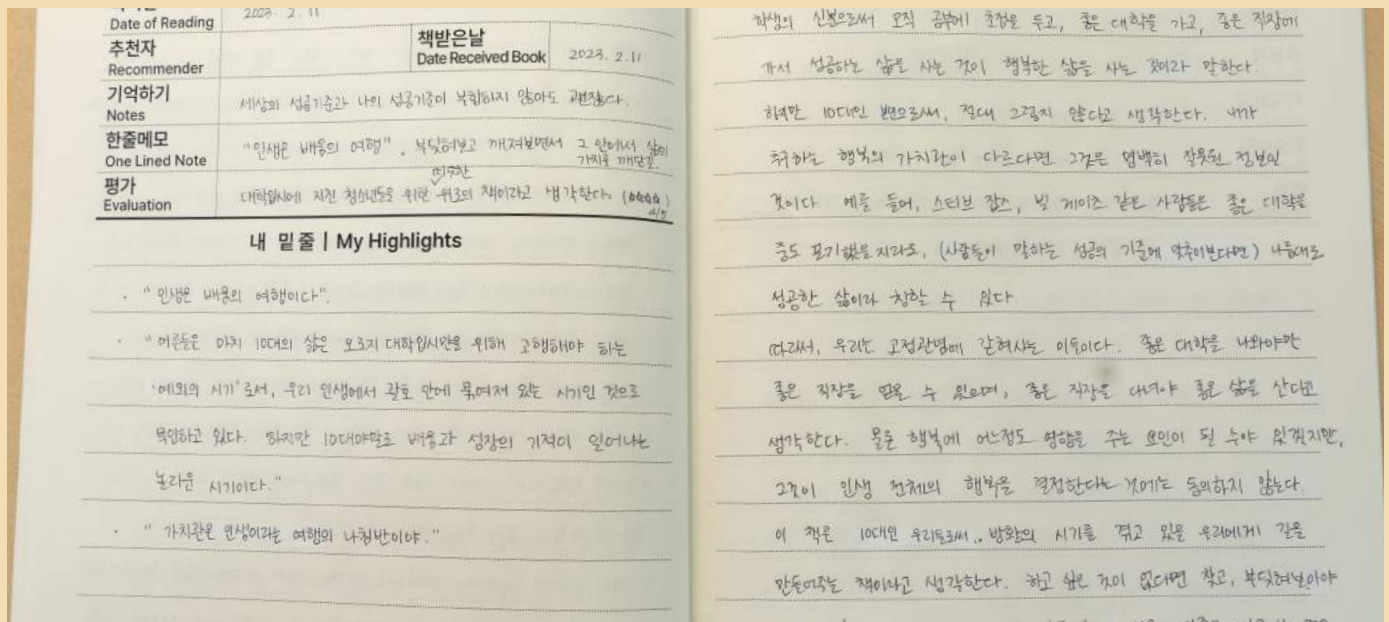 Date of Reading 2023. 2. 11
추천자
Recommender
책받은날
Date Received Book 2023. 2. 11
기억하기
Notes
세상의 성공기준과 나의 성공기준이 부합하지 않아도 괜찮다.
한줄메모
One Lined Note
"인생은 배움의 여행". 부딪혀보고 깨져보면서 그 안에서 삶의
가치를 깨닫길.
평가
Evaluation
따뜻한
대학입시에 지친 청소년들을 위한 위로의 책이라고 생각한다. (☆☆☆☆)
4/5
내 밑줄 | My Highlights
· "인생은 배움의 여행이다".
· "어른들은 마치 10대의 삶은 오로지 대학입시만을 위해 고행해야 하는
'예외의 시기'로서, 우리 인생에서 괄호 안에 묶여져 있는 시기인 것으로
묵인하고 있다. 하지만 10대야말로 배움과 성장의 기적이 일어나는
놀라운 시기이다."
· "가치관은 인생이라는 여행의 나침반이야."
학생의 신분으로써 오직 공부에 초점을 두고, 좋은 대학을 가고, 좋은 직장에
가서 성공하는 삶을 사는 것이 행복한 삶을 사는 것이라 말한다.
하지만 10대인 본인으로써, 절대 그렇지 않다고 생각한다. 내가
추구하는 행복의 가치관이 다르다면 그것은 명백히 잘못된 정보인
것이다. 예를 들어, 스티브 잡스, 빌 게이츠 같은 사람들은 좋은 대학을
중도 포기했을지라도, (사람들이 말하는 성공의 기준에 맞추어본다면) 나름대로
성공한 삶이라 칭할 수 있다.
따라서, 우리는 고정관념에 갇혀사는 이들이다. 좋은 대학을 나와야만
좋은 직장을 얻을 수 있으며, 좋은 직장을 다녀야 좋은 삶을 산다고
생각한다. 물론 행복에 어느정도 영향을 주는 요인이 될 수야 있겠지만,
그것이 인생 전체의 행복을 결정한다는 것에는 동의하지 않는다.
이 책은 10대인 우리들로써, 방황의 시기를 겪고 있을 우리에게 길을
만들어주는 책이라고 생각한다. 하고 싶은 것이 없다면 찾고, 부딪혀보아야